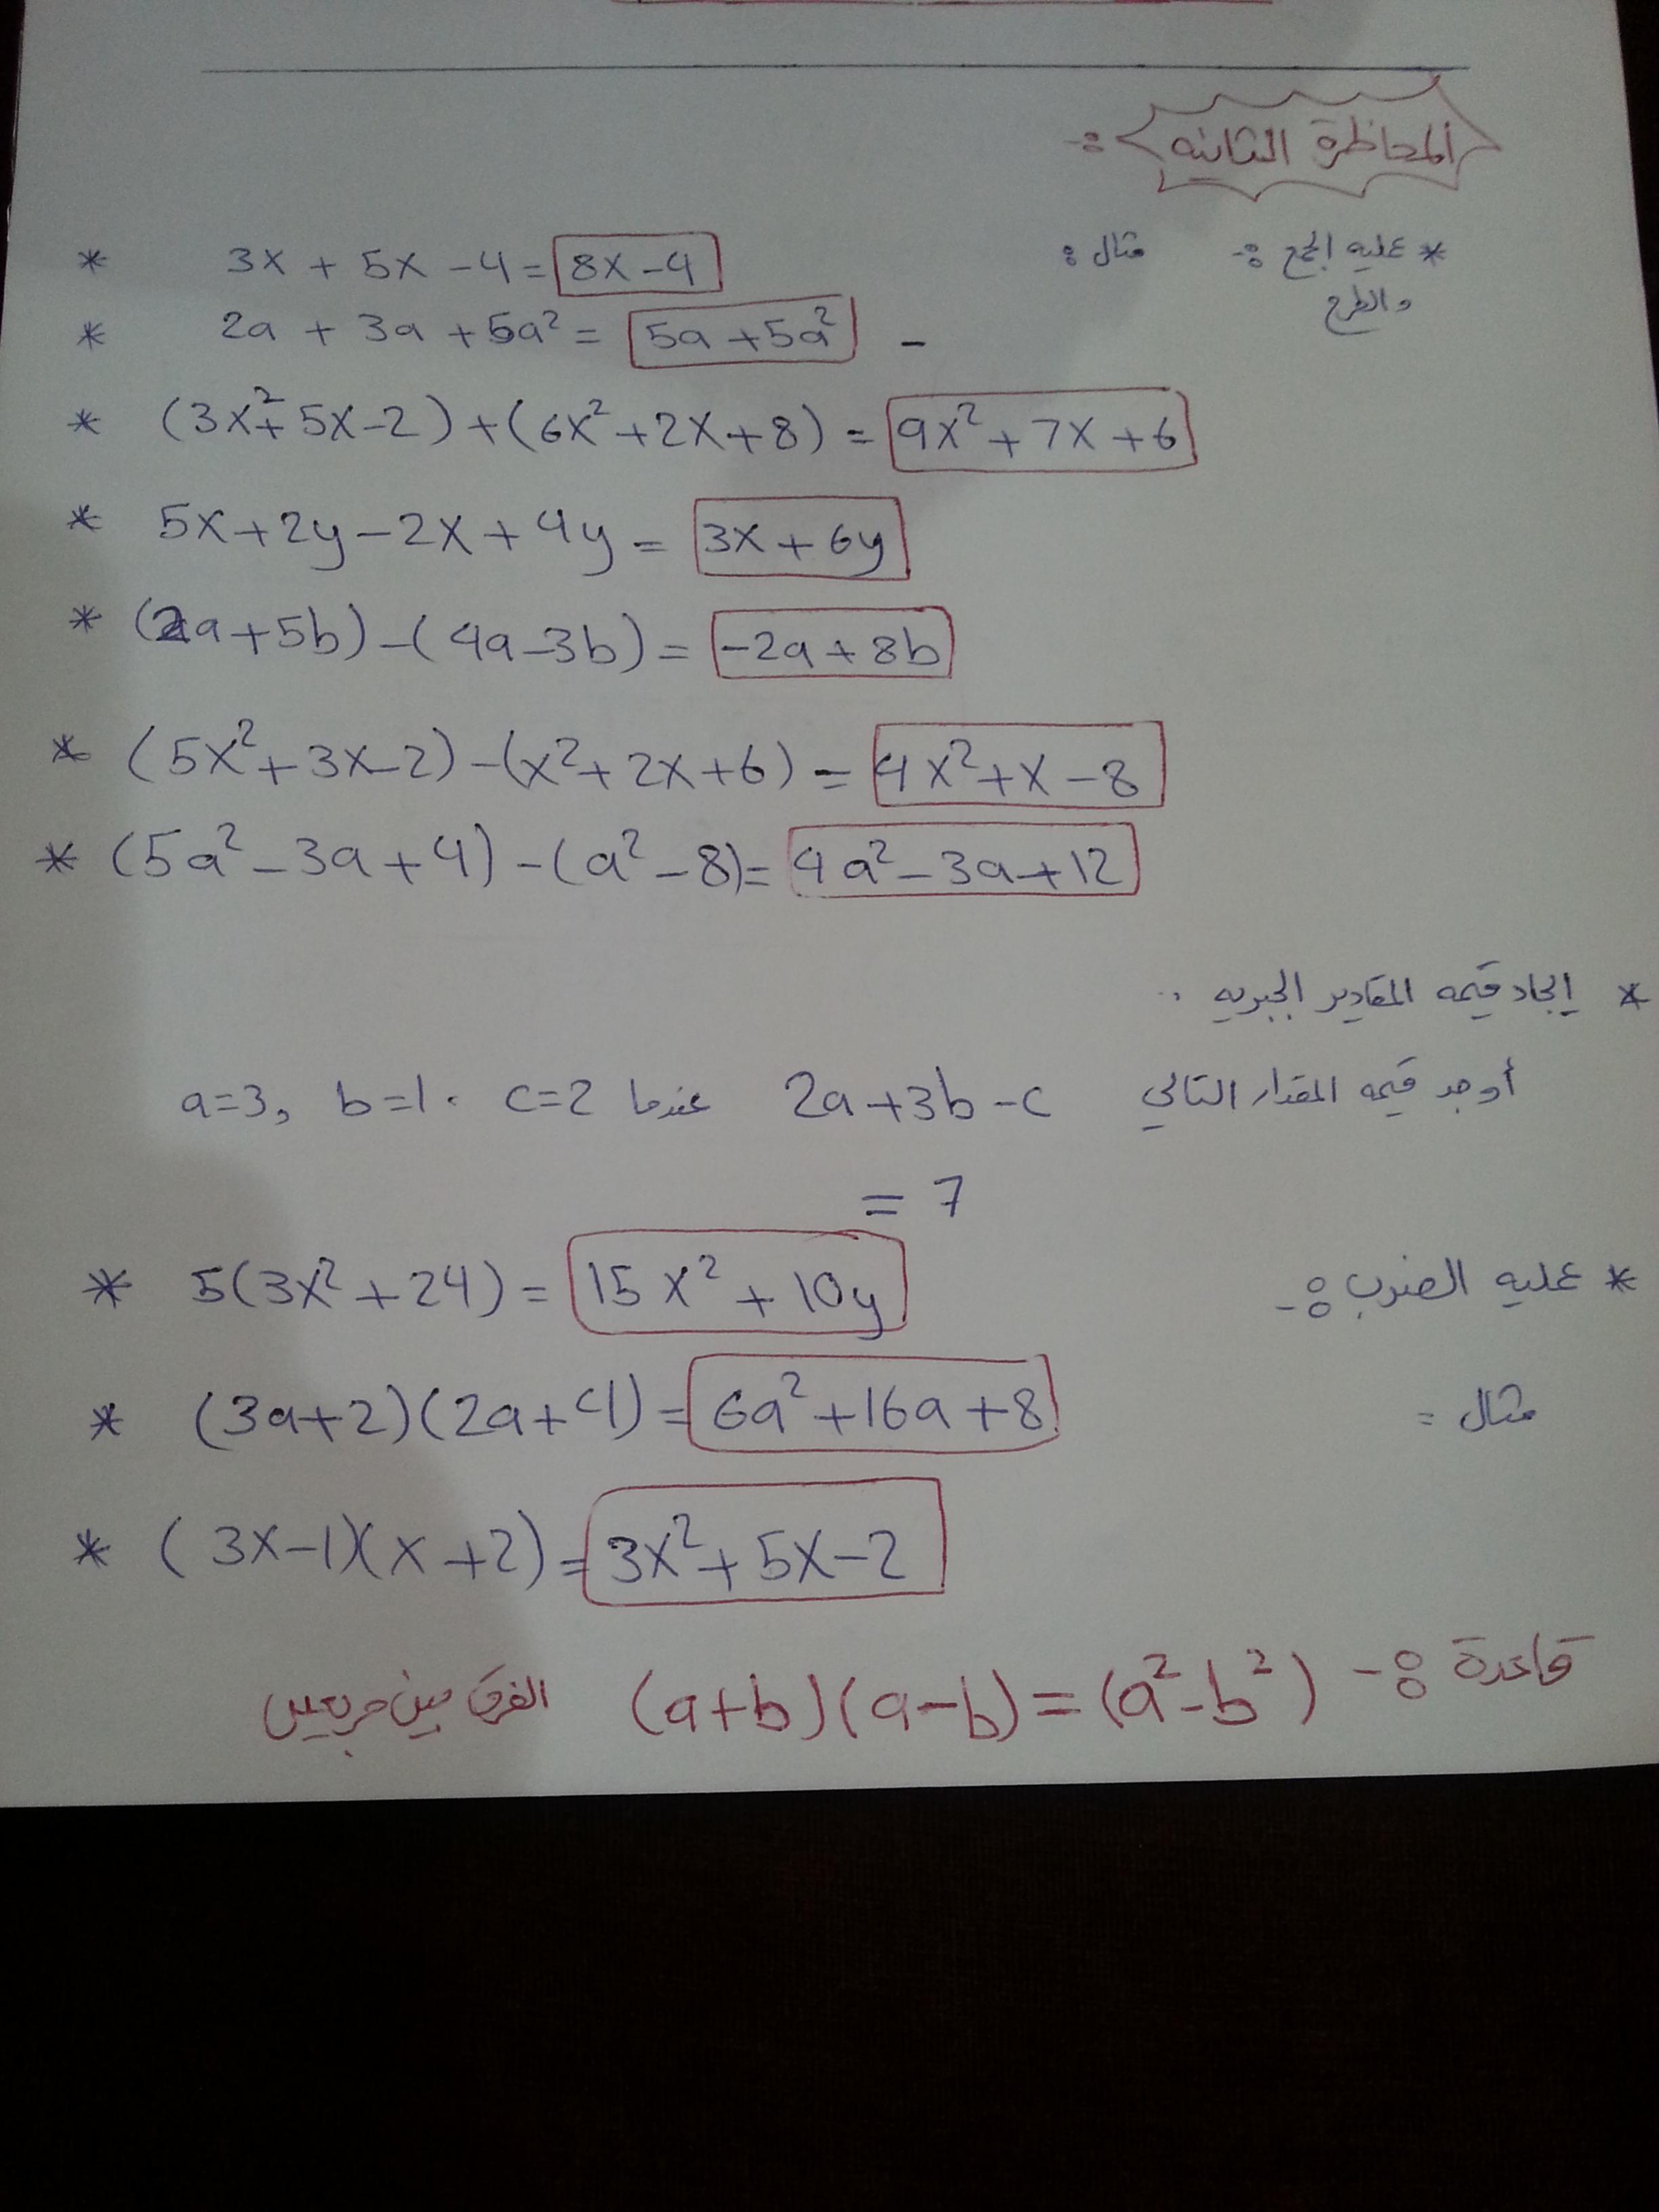 المحاظرة الثانيه :-
* عليه الجمع :- مثال :
والطرح
* 3x + 5x - 4 = 8x - 4
* 2a + 3a + 5a² = 5a + 5a² -
* (3x² + 5x - 2) + (6x² + 2x + 8) = 9x² + 7x + 6
* 5x + 2y - 2x + 4y = 3x + 6y
* (2a + 5b) - (4a - 3b) = -2a + 8b
* (5x² + 3x - 2) - (x² + 2x + 6) = 4x² + x - 8
* (5a² - 3a + 4) - (a² - 8) = 4a² - 3a + 12
* إيجاد قيمه المقادير الجبريه ..
أوجد قيمه المقدار التالي 2a + 3b - c عندما a=3, b=1. c=2
= 7
* عليه الضرب :-
* 5(3x² + 24) = 15x² + 10y
مثال =
* (3a + 2)(2a + 4) = 6a² + 16a + 8
* (3x - 1)(x + 2) = 3x² + 5x - 2
قاعدة :- (a + b)(a - b) = (a² - b²) الفرق بين مربعين